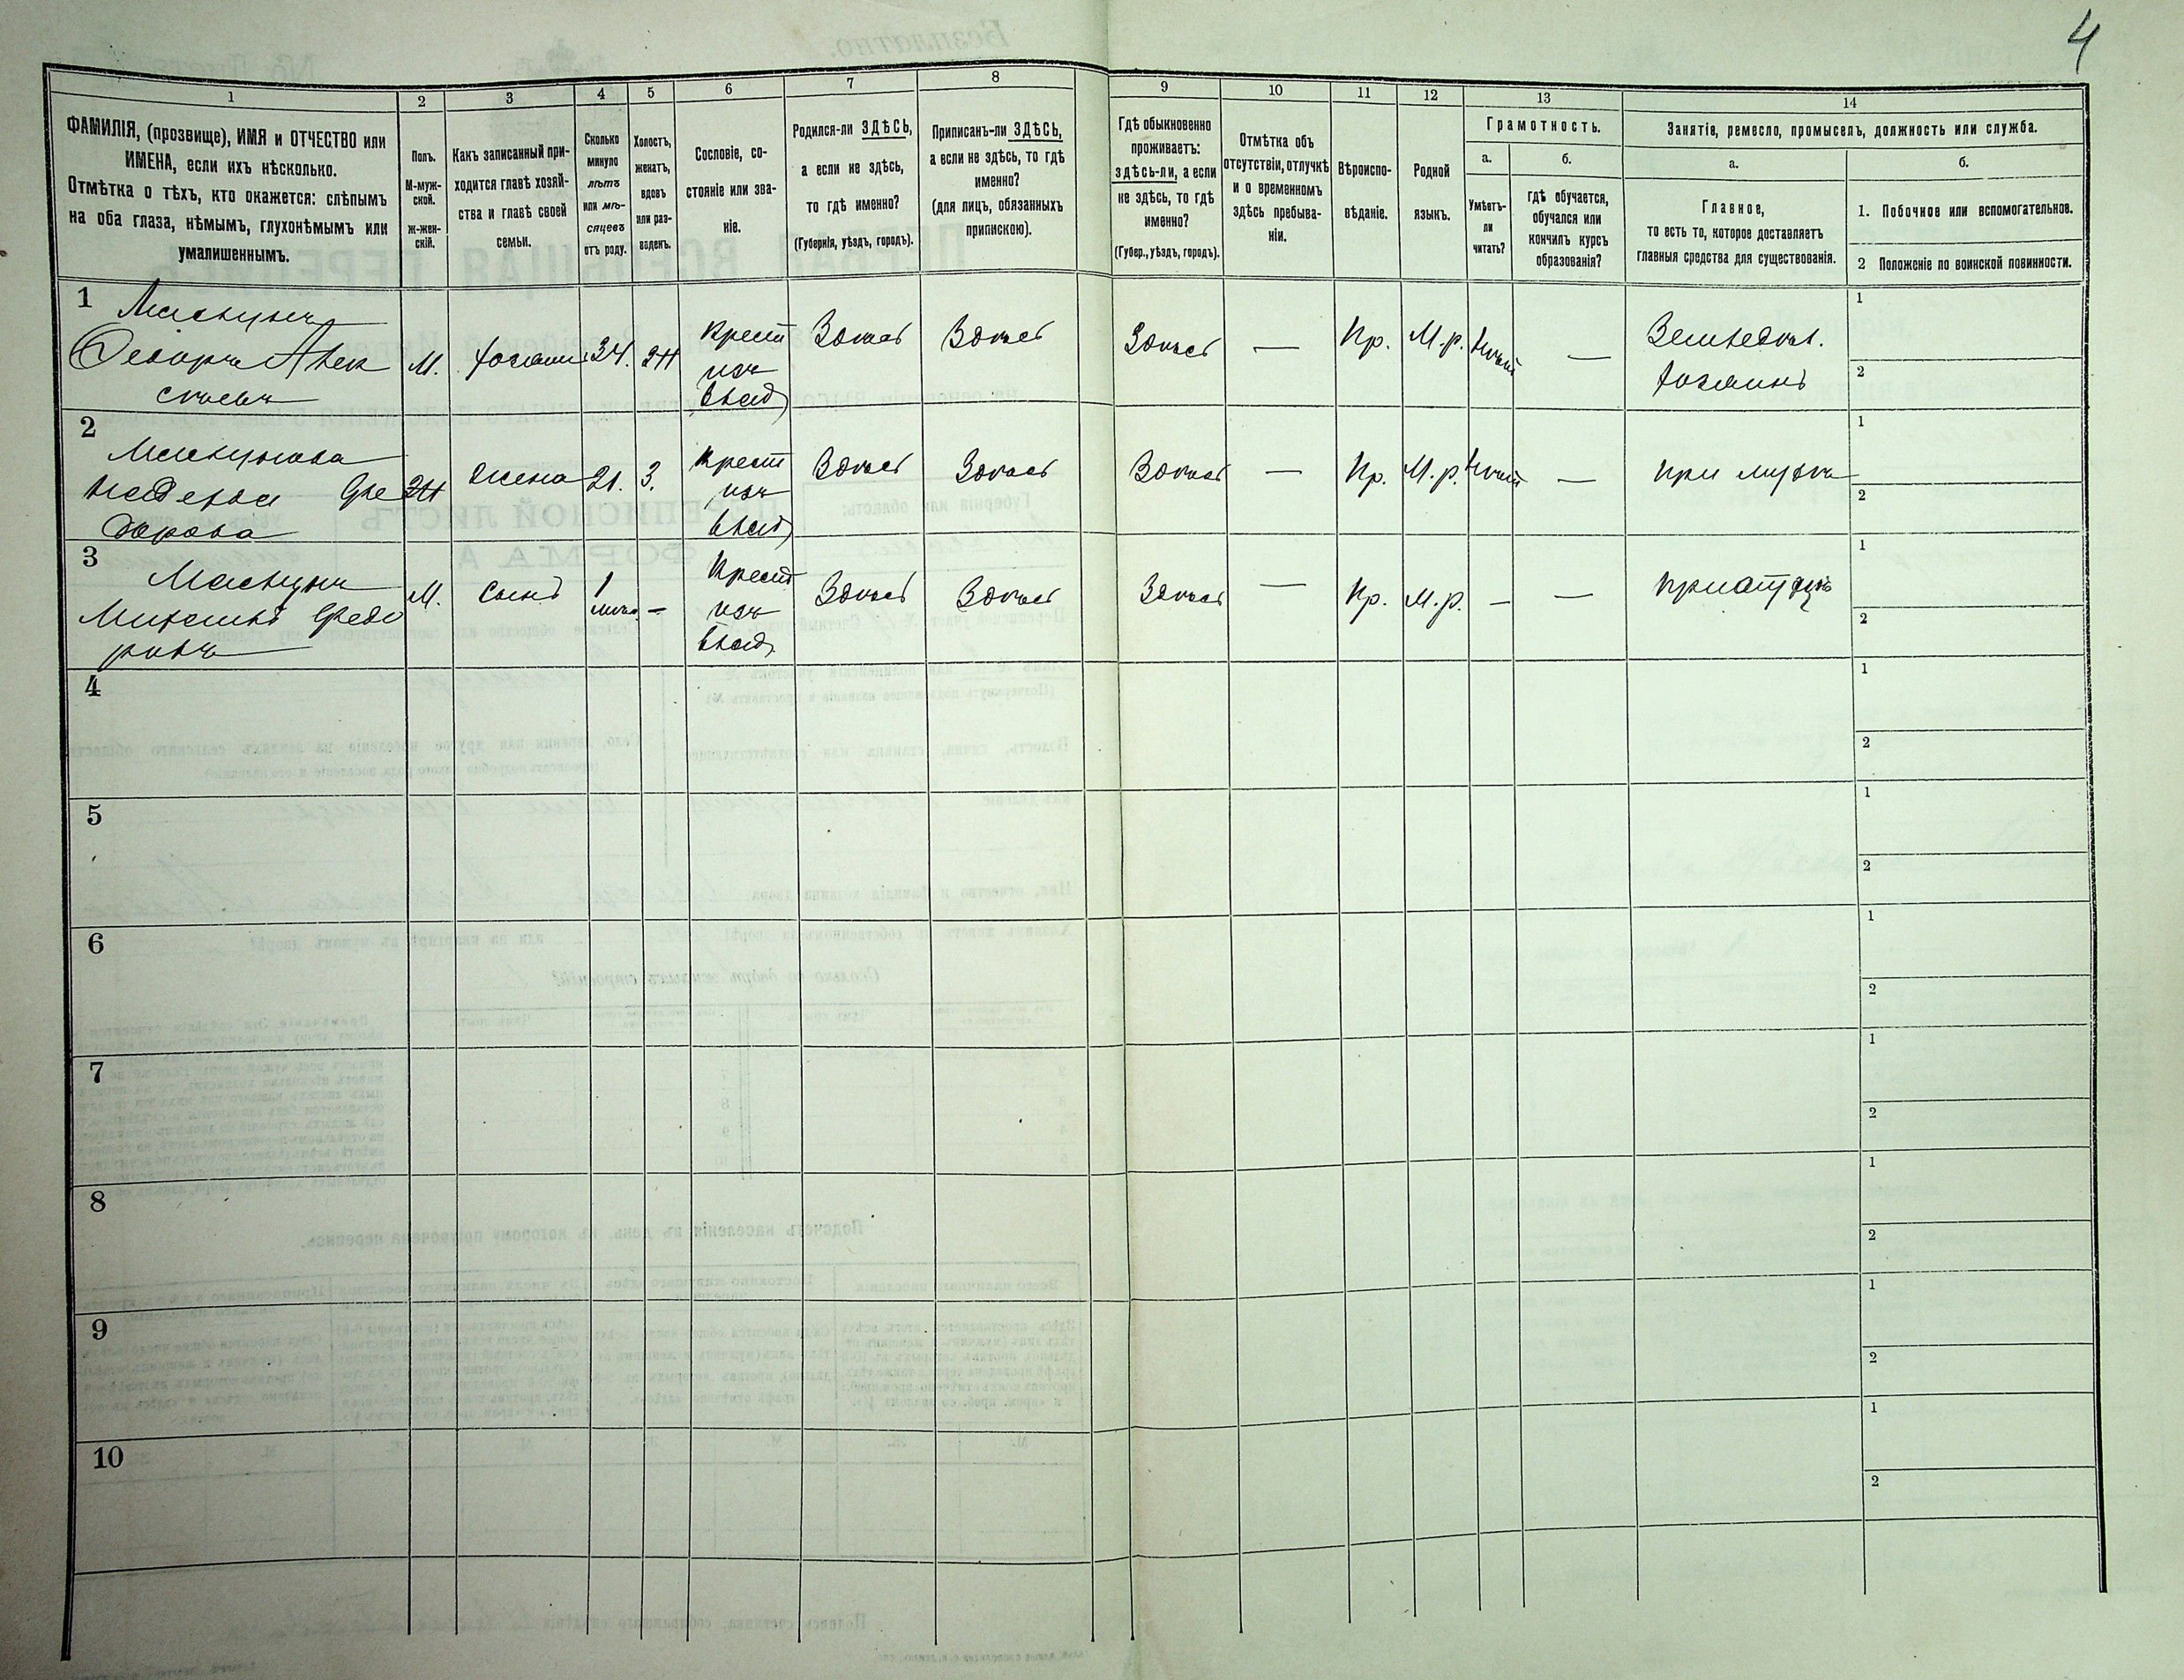 4
1
2
3
4
5
6
7
8
9
10
11
12
13
14
ФАМИЛІЯ, (прозвище), ИМЯ и ОТЧЕСТВО или
ИМЕНА, если ихъ нѣсколько.
Отмѣтка о тѣхъ, кто окажется: слѣпымъ
на оба глаза, нѣмымъ, глухонѣмымъ или
умалишеннымъ.
Полъ.
М-муж-
ской.
ж-жен-
скій.
Какъ записанный при-
ходится главѣ хозяй-
ства и главѣ своей
семьи.
Сколько
минуло
лѣтъ
или мѣ-
сяцевъ
отъ роду.
Холостъ,
женатъ,
вдовъ
или раз-
веденъ.
Сословіе, со-
стояніе или зва-
ніе.
Родился-ли ЗДѢСЬ,
а если не здѣсь,
то гдѣ именно?
(Губернія, уѣздъ, городъ).
Приписанъ-ли ЗДѢСЬ,
а если не здѣсь, то гдѣ
именно?
(для лицъ, обязанныхъ
припискою).
Гдѣ обыкновенно
проживаетъ:
здѣсь-ли, а если
не здѣсь, то гдѣ
именно?
(Губер., уѣздъ, городъ).
Отмѣтка объ
отсутствіи, отлучкѣ
и о временномъ
здѣсь пребыва-
ніи.
Вѣроиспо-
вѣданіе.
Родной
языкъ.
Грамотность.
а.
б.
Умѣетъ-
ли
читать?
гдѣ обучается,
обучался или
кончилъ курсъ
образованія?
Занятіе, ремесло, промыселъ, должность или служба.
а.
б.
Главное,
то есть то, которое доставляетъ
главныя средства для существованія.
1. Побочное или вспомогательное.
2 Положеніе по воинской повинности.
1
Федоръ Алек
сѣевъ
М.
хозяинъ
34.
Ж
Крест
изъ
влад
Здѣсь
Здѣсь
Здѣсь
—
Пр.
М.р.
Нѣтъ
—
Земледѣл.
хозяинъ
1
2
2
Ж
жена
21.
З.
Крест
изъ
влад
Здѣсь
Здѣсь
Здѣсь
—
Пр.
М.р.
Нѣтъ
—
при мужѣ
1
2
3
Михаилъ Федо
ровъ
М.
Сынъ
1
—
Крест
изъ
влад
Здѣсь
Здѣсь
Здѣсь
—
Пр.
М.р.
—
—
при отцѣ
1
2
4
1
2
5
1
2
6
1
2
7
1
2
8
1
2
9
1
2
10
1
2